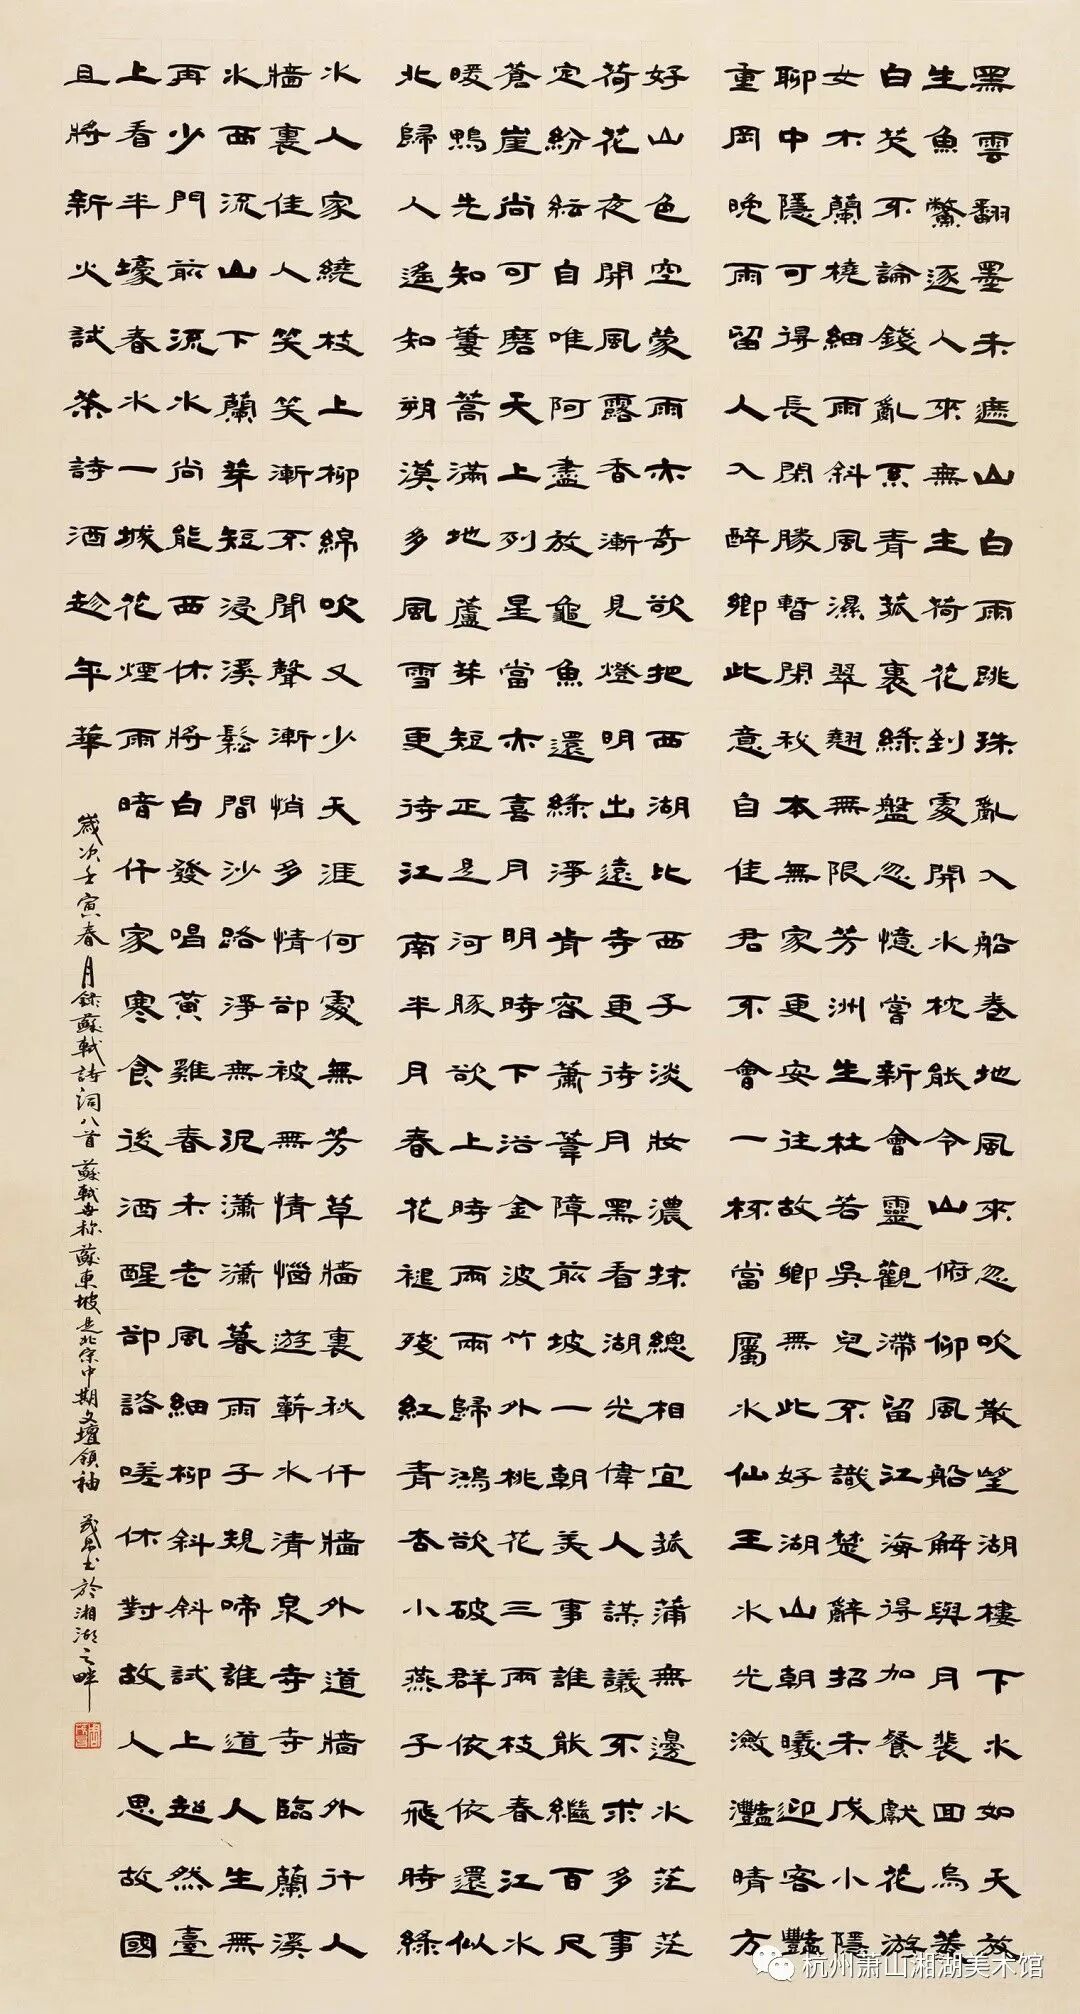 黑雲翻墨未遮山白雨跳珠亂入船卷地風來忽吹散望湖樓下水如天放
生魚鱉逐人來無主荷花到處開水枕能令山俯仰風船解與月裴回烏菱
白芡不論錢亂系青菰裹綠盤忽憶嘗新會靈觀滯留江海得加餐獻花游
女木蘭橈細雨斜風濕翠翹無限芳洲生杜若吳兒不識楚辭招未成小隱
聊中隱可得長閑勝暫閑我本無家更安往故鄉無此好湖山朝曦迎客豔
重岡晚雨留人入醉鄉此意自佳君不會一杯當屬水仙王水光瀲灩晴方
好山色空蒙雨亦奇欲把西湖比西子淡妝濃抹總相宜菰蒲無邊水茫茫
荷花夜開風露香漸見燈明出遠寺更待月黑看湖光偉人謀議不求多事
定紛紜自唯阿盡放龜魚還綠淨肯容蕭葦障前坡一朝美事誰能繼百尺
蒼崖尚可磨天上列星當亦喜月明時下浴金波竹外桃花三兩枝春江水
暖鴨先知蔞蒿滿地蘆芽短正是河豚欲上時兩兩歸鴻欲破群依依還似
北歸人遙知朔漠多風雪更待江南半月春花褪殘紅青杏小燕子飛時綠
水人家繞枝上柳綿吹又少天涯何處無芳草牆裏秋仟牆外道牆外行人
牆裏佳人笑笑漸不聞聲漸悄多情卻被無情惱遊蘄水清泉寺寺臨蘭溪
水西流山下蘭芽短浸溪鬆間沙路淨無泥瀟瀟暮雨子規啼誰道人生無
再少門前流水尚能西休將白發唱黃雞春未老風細柳斜斜試上超然臺
上看半壕春水一城花煙雨暗仟家寒食後酒醒卻諮嗟休對故人思故國
且將新火試茶詩酒趁年華
歲次壬寅春月錄蘇軾詩詞八首 蘇軾世称蘇東坡是北宋中期文壇領袖 书於湘湖之畔
杭州萧山湘湖美术馆